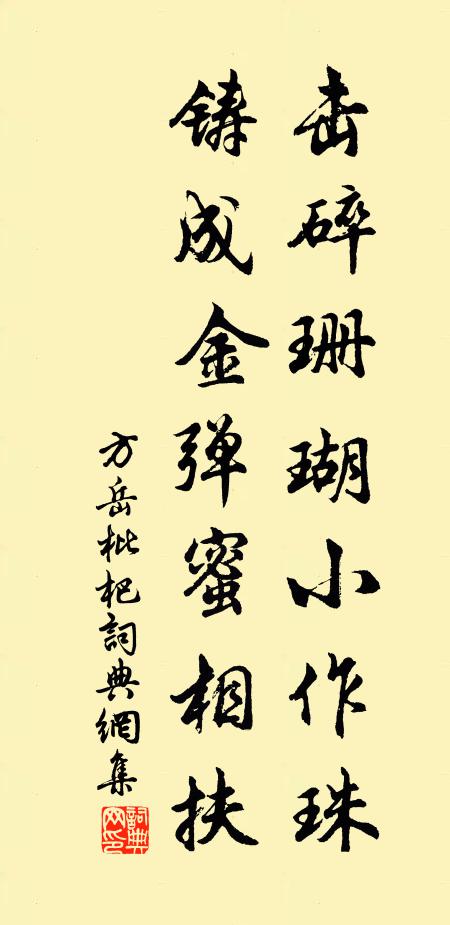 击碎珊瑚小作珠
铸成金弹蜜相扶
方岳枇杷詞典網集
詞典网印